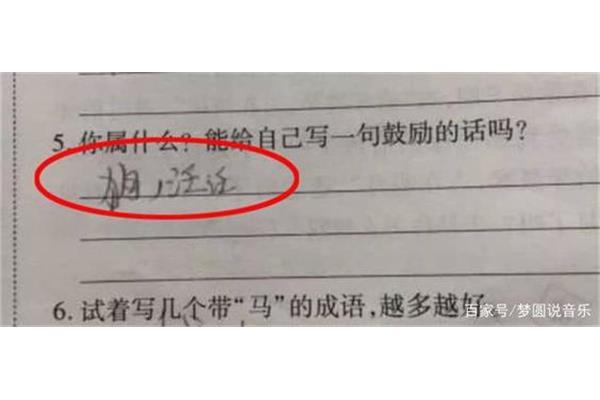 5. 你属什么？能给自己写一句鼓励的话吗？
6. 试着写几个带“马”的成语,越多越好。
百家号/梦圆说音乐